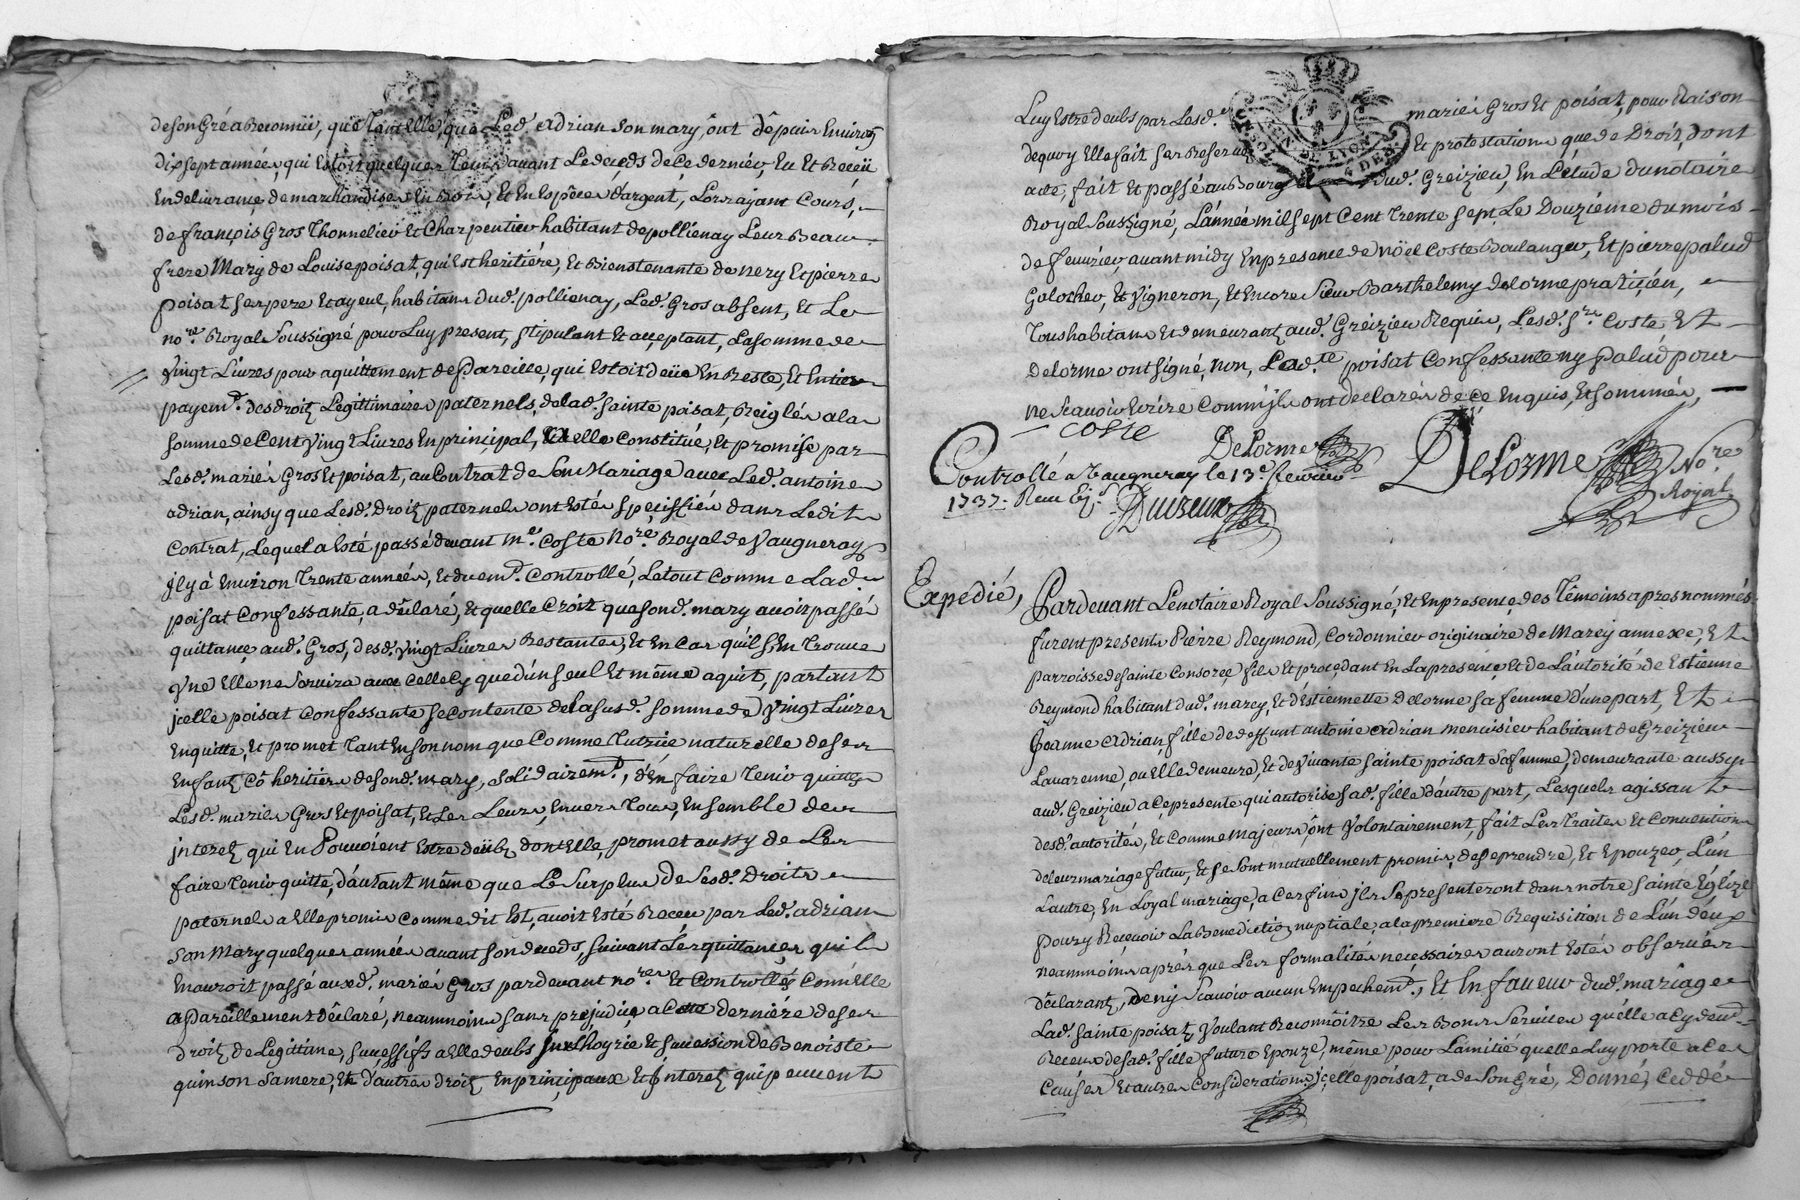 de son Gré a Reconnüe, que tant elle que Led. adrian son mary ont depuis Environ
dix sept années, qui Estoit quelques tems avant Le deceds de ce dernier, Eu Et Receü
En delivrance de marchandises En Bois, Et En Espéce d'argent, Lors ayant Cours,
de françois Gros Thonnelier Et Charpentier habitant de pollienay Leur Beau
frere Mary de Louise poisat, qui Est heritiére, Et Bienstenante de nery Et pierre
poisat ses pere Et ayeul, habitans dud. pollienay, Led. Gros absent, Et Le
nore. Royal Soussigné pour Luy present, stipulant Et acceptant, La somme de
Vingt Livres pour aquittement de Pareille, qui Estoit deüe En Reste, Et Entier
payemt. des droitz Legittimaires paternels, de lad. Sainte poisat, Reiglés a la
somme de Cent Vingt Livres En principal, a elle Constitué, Et promise par
Lesd. mariés Gros Et poisat, au Contrat de Son Mariage avec Led. antoine
adrian, ainsy que Lesd. Droitz paternels ont Estés speciffiés dans Ledit
Contrat, Lequel a Esté passé devant me. Coste Nore. Royal de Vaugneray
jl y à Environ Trente années, Et duemt. Controllé, Le tout Comme Lad.
poisat Confessante, a déclaré, Et quelle Croit que sond. mary avoir passé
quittance aud. Gros, desd. Vingt Livres Restantes, Et En Cas qu'il s'En Trouve
Une Elle ne Servira avec Celle Cy que d'un seul Et même aquit, partant
jcelle poisat Confessante se Contente de la susd. somme de Vingt Livres
En quitte, Et promet Tant En son nom que Comme Tutrice naturelle de ses
Enfantz Cô heritiers de sond. mary, solidairemt., d'En faire Tenir quittes
Lesd. mariés Gros Et poisat, Et Les Leurs, Envers Tous, Ensemble des
jnteretz qui En Pouvoient Estre deübz dont Elle promet aussy de Les
faire Tenir quitte, d'autant même que Le Surplus de Sesd. Droits
paternels a Elle promis Comme dit Est, avoit Esté Receu par Led. adrian
Son Mary quelques années avant son deceds, suivant Les quittances qu'il
En auroit passé auxd. mariés Gros pardevant nores. Et Controllés Com'elle
a Pareillement déclaré, neammoins sans prejudice a Cette derniére de ses
droitz de Legittime, successifs a Elle deubs Sur L'hoyrie Et succession de Benoiste
quinson sa mere, Et d'autres droitz En principaux Et jnteretz qui peuvent
Luy Estre deubs par Lesd. mariés Gros Et poisat, pour Raison
de quoy Elle fait ses Reserves Et protestations que de Droit, dont
acte, fait Et passé au Bourg dud. Greizieu, En L'étude du notaire
Royal Soussigné, L'année mil sept Cent Trente sept, Le Douziéme du mois
de fevrier, avant midy En presence de Nöel Coste Boulanger, Et pierre palud
Galocher, Et Vigneron, Et Encore Sieur Barthelemy delorme praticien,
Tous habitans Et demeurantz aud. Greizieu Requis, Lesd. srs. Coste Et
Delorme ont signé, non, Ladte. poisat Confessante ny Palud pour
ne Scavoir Ecrire Comm'jls ont declarés de Ce Enquis, Et sommés,
coste
Delorme
Delorme Nore.
Royal
Controllé a Vaugneray le 13e. fevrier
1737. Receu
Expedié, Pardevant Le notaire Royal Soussigné, Et En presence des Témoins apres nommés
furent presents Pierre Reymond, Cordonnier originaire de Marcy annexe, Et
parroisse de sainte Consorce fils Et procedant En La presence, Et de L'autorité de Estienne
Reymond habitant dud. marcy, Et d'Estiennette Delorme sa femme d'une part, Et
Jeanne Adrian fille de deffunt antoine adrian menuisier habitant de Greizieu
Lavarenne, ou Elle demeure, Et de Vivante Sainte poisat Sa femme, demeurante aussy
aud. Greizieu a Ce presente qui autorise sad. fille d'autre part, Lesquels agissant
desd. autorités, Et Comme majeurs, ont Volontairement fait Les Traités Et Conventions
de leur mariage futur, Et se sont mutuellement promis, de se prendre, Et Epouzer L'un
L'autre, En Loyal mariage, a Ces fins jls Se presenteront dans notre Sainte Églize
pour y Recevoir La Benediction nuptiale, a la premiere Requisition de L'un d'eux
neammoins aprés que Les formalités necessaires auront Estés observés
Déclarantz, De n'y Scavoir aucun Empechemt., Et En faveur dud. mariage
Lad. Sainte poisat, Voulant Reconnoitre Les Bons Services quélle a Cy devt.
Receus de sad. fille future Epouze, même pour L'amitié quelle Luy porte a Ces
Causes Et autres Considerations jcelle poisat, a de Son Gré, Donné, Ceddé